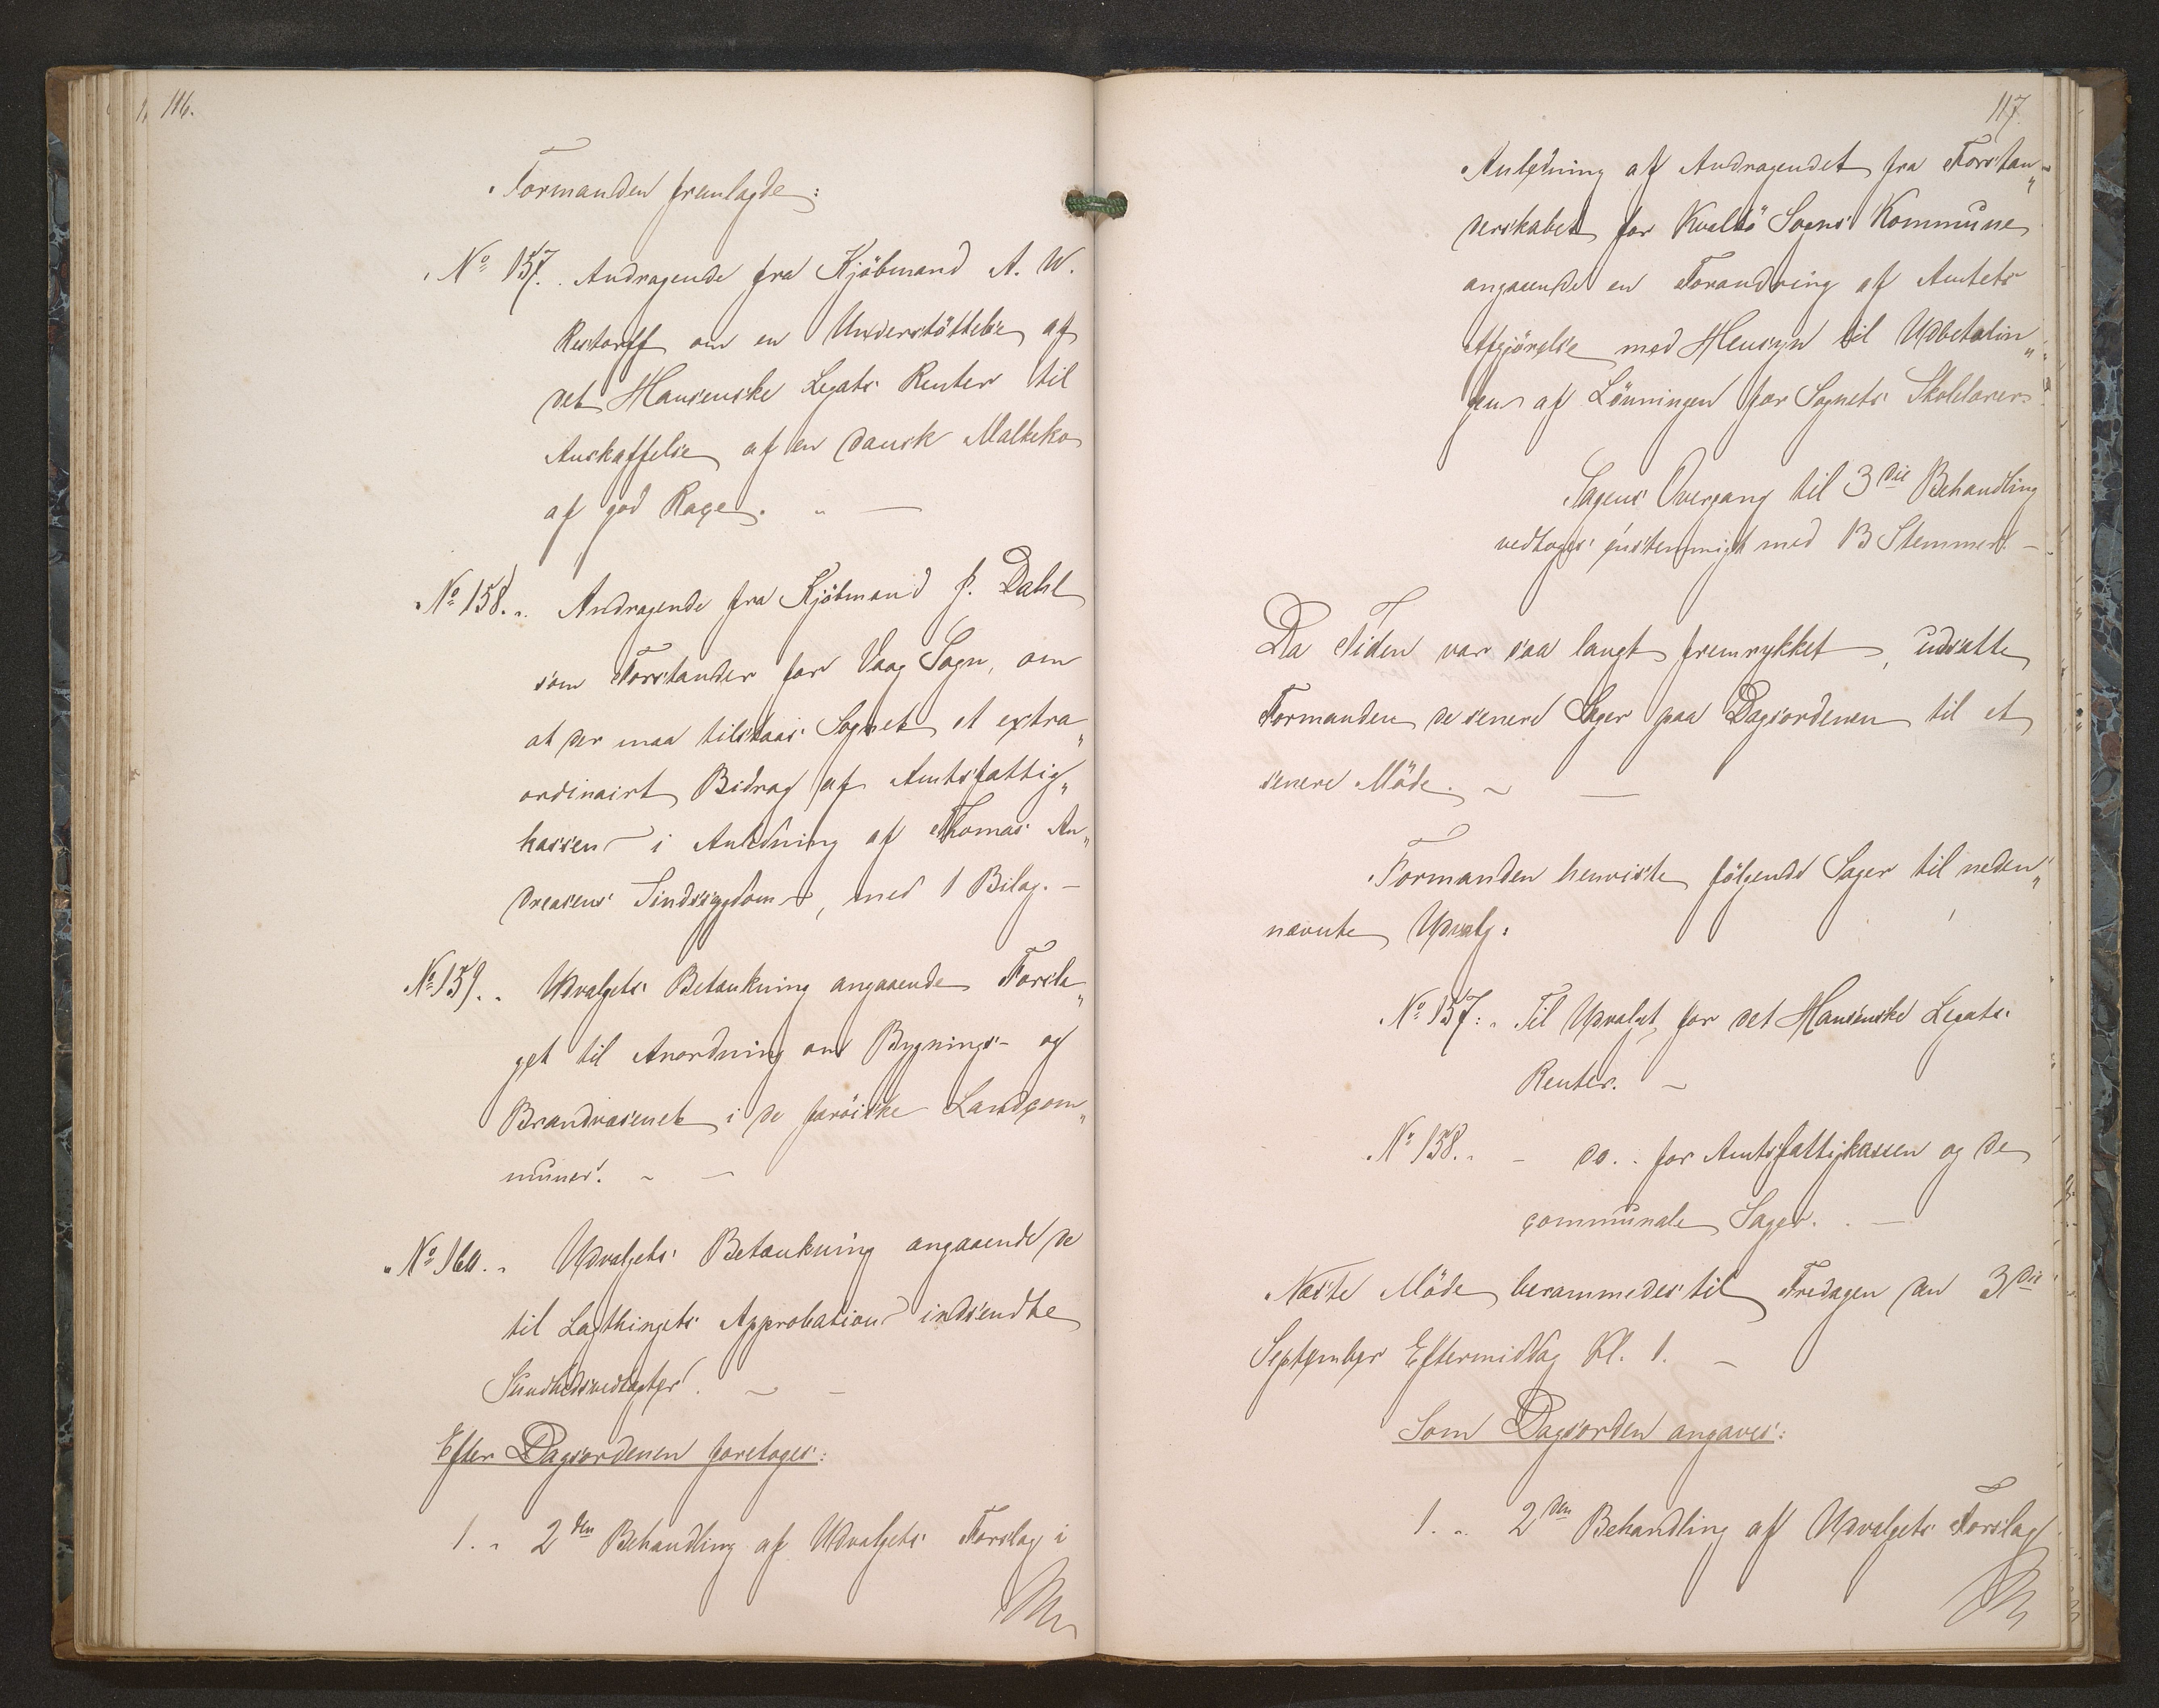 116.
Formanden fremlagde:
No 157. Andragende fra Kjöbmand A. W.
Restorff om en Understöttelse af
det Hansenske Legats Renter til
Anskaffelse af en dansk Malkeko
af god Race. " —
No 158. " Andragende fra Kjöbmand J. Dahl
som Forstander for Vaag Sogn, om
at der maa tilstaas Sognet et extra„
ordinairt Bidrag af Amtsfattig„
kassen i Anledning af Thomas An„
dreasens Sindssygdom, med 1 Bilag. —
No 159. " Udvalgets Betænkning angaaende Forsla„
get til Anordning om Bygnings- og
Brandvæsenet i de færöiske Landcom„
muner. ~ —
No 160. " Udvalgets Betænkning angaaende de
til Lagthingets Approbation indsendte
Sundhedsvedtægter. ~ —
Efter Dagsordenen foretoges:
1. " 2den Behandling af Udvalgets Forslag i
117.
Anledning af Andragendet fra Forstan„
derskabet for Kvalbö Sogns Kommune
angaaende en Forandring af Amtets
Afgjörelse med Hensyn til Udbetalin„
gen af Lönningen for Sognets Skolelærer.
Sagens Overgang til 3die Behandling
vedtoges enstemmigt med 13 Stemmer. —
Da Tiden var saa langt fremrykket, udsatte
Formanden de senere Sager paa Dagsordenen til et
senere Möde. ~ —
Formanden henviste fölgende Sager til neden„
nævnte Udvalg:
No 157: " Til Udvalget for det Hansenske Legats
Renter. ~
No 158. " — do. " for Amtsfattigkassen og de
communale Sager. . —
Næste Möde berammedes til Fredagen den 3die
September Eftermiddag Kl. 1. —
Som Dagsorden angaves:
1. " 2den Behandling af Udvalgets Forslag